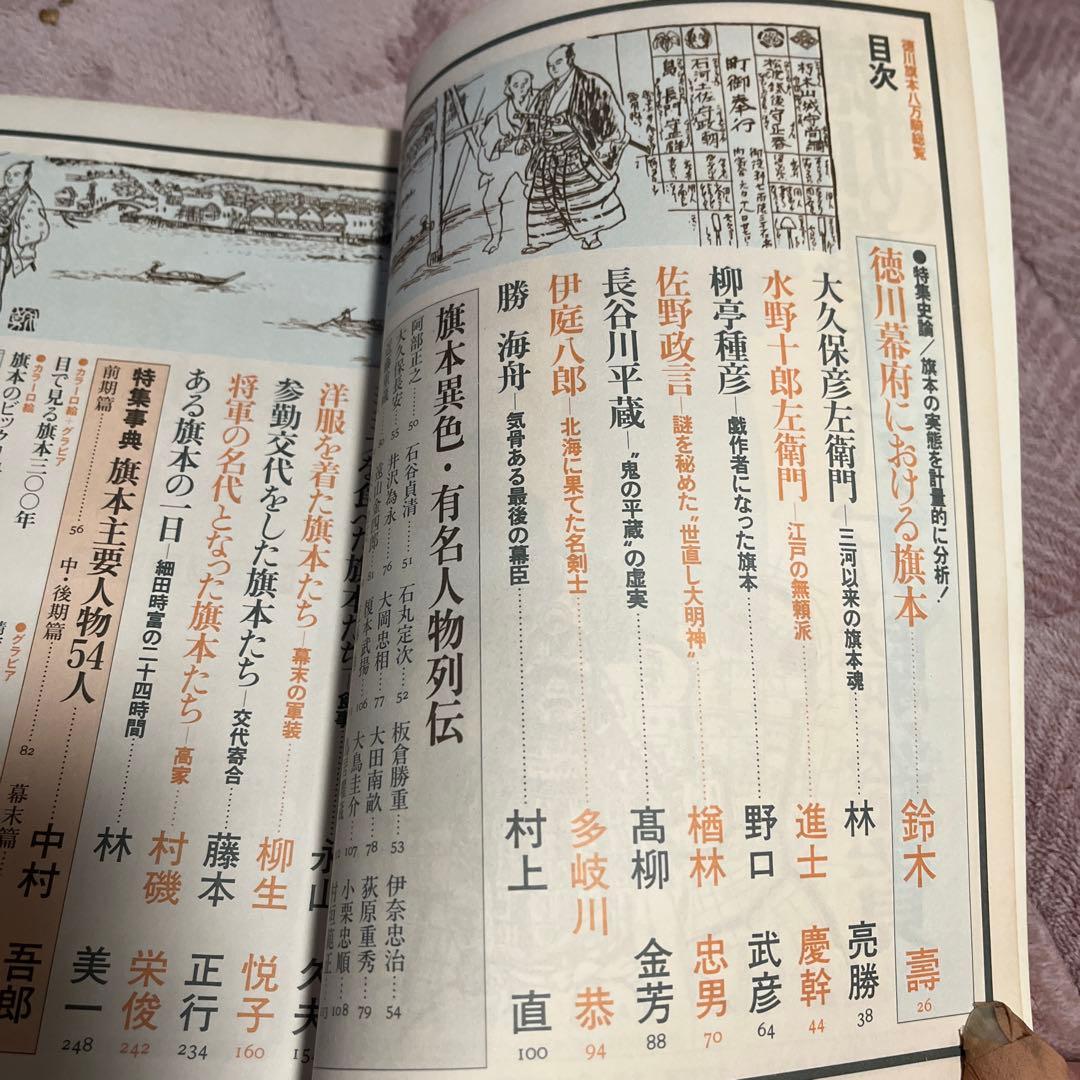 徳川旗本八万騎総覧
目次
●特集史論/旗本の実態を計量的に分析!
徳川幕府における旗本……鈴木 壽 26
大久保彦左衛門―三河以来の旗本魂……林 亮勝 38
水野十郎左衛門―江戸の無頼派……進士 慶幹 44
柳亭種彦―戯作者になった旗本……野口 武彦 64
佐野政言―謎を秘めた“世直し大明神”……楢林 忠男 70
長谷川平蔵―“鬼の平蔵”の虚実……髙柳 金芳 88
伊庭八郎―北海に果てた名剣士……多岐川 恭 94
勝 海舟―気骨ある最後の幕臣……村上 直 100
旗本異色・有名人物列伝
阿部正之……50 石谷貞清……51 石丸定次……52 板倉勝重……53 伊奈忠治……54
大久保長安……55 井沢為永……76 大岡忠相……77 大田南畝……78 荻原重秀……79
遠山金四郎……81 榎本武揚……106 大鳥圭介……107 小栗忠順……108
永山 久夫
洋服を着た旗本たち―幕末の軍装……柳生 悦子 160
参勤交代をした旗本たち―交代寄合……藤本 正行 234
将軍の名代となった旗本たち―高家……村磯 栄俊 242
ある旗本の一日―細田時富の二十四時間……林 美一 248
特集事典 旗本主要人物54人……中村 吾郎
前期篇……56 中・後期篇……82 幕末篇
●カラー口絵+グラビア
目で見る旗本三〇〇年
●カラー口絵
●グラビア
町御奉行